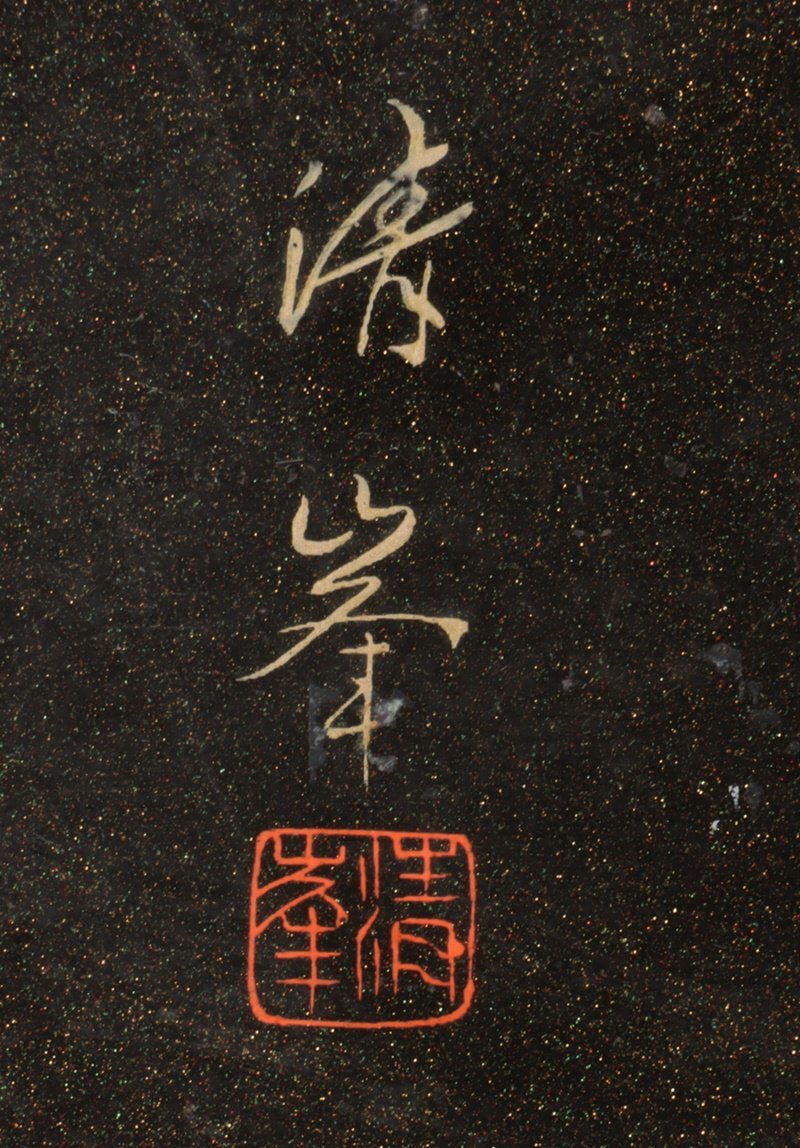 清
峯
清峯